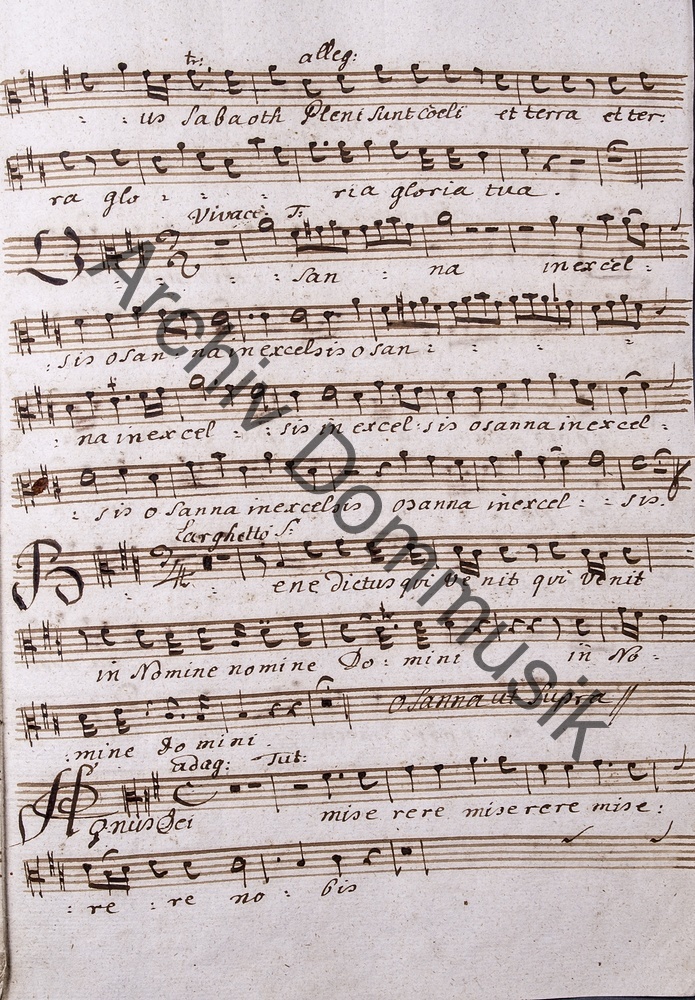 tr: alleg:
us Sabaoth Pleni sunt coeli et terra et ter:
ra glo : : : ria gloria tua .
Vivace T:
O : : : san : na in excel :
: sis o san : na in excelsis o san : : : :
: na in excel : : sis in excel : sis osanna in excel :
: sis o sanna in excelsis osanna in excel : sis.
Larghetto S:
Benedictus qui venit qui venit
in Nomine nomine Do : mini in No :
: mine Do mini . Osanna ut Supra
adag: Tut:
Agnus Dei mise rere miserere mise :
: re : re no : bis
Archiv Dommusik